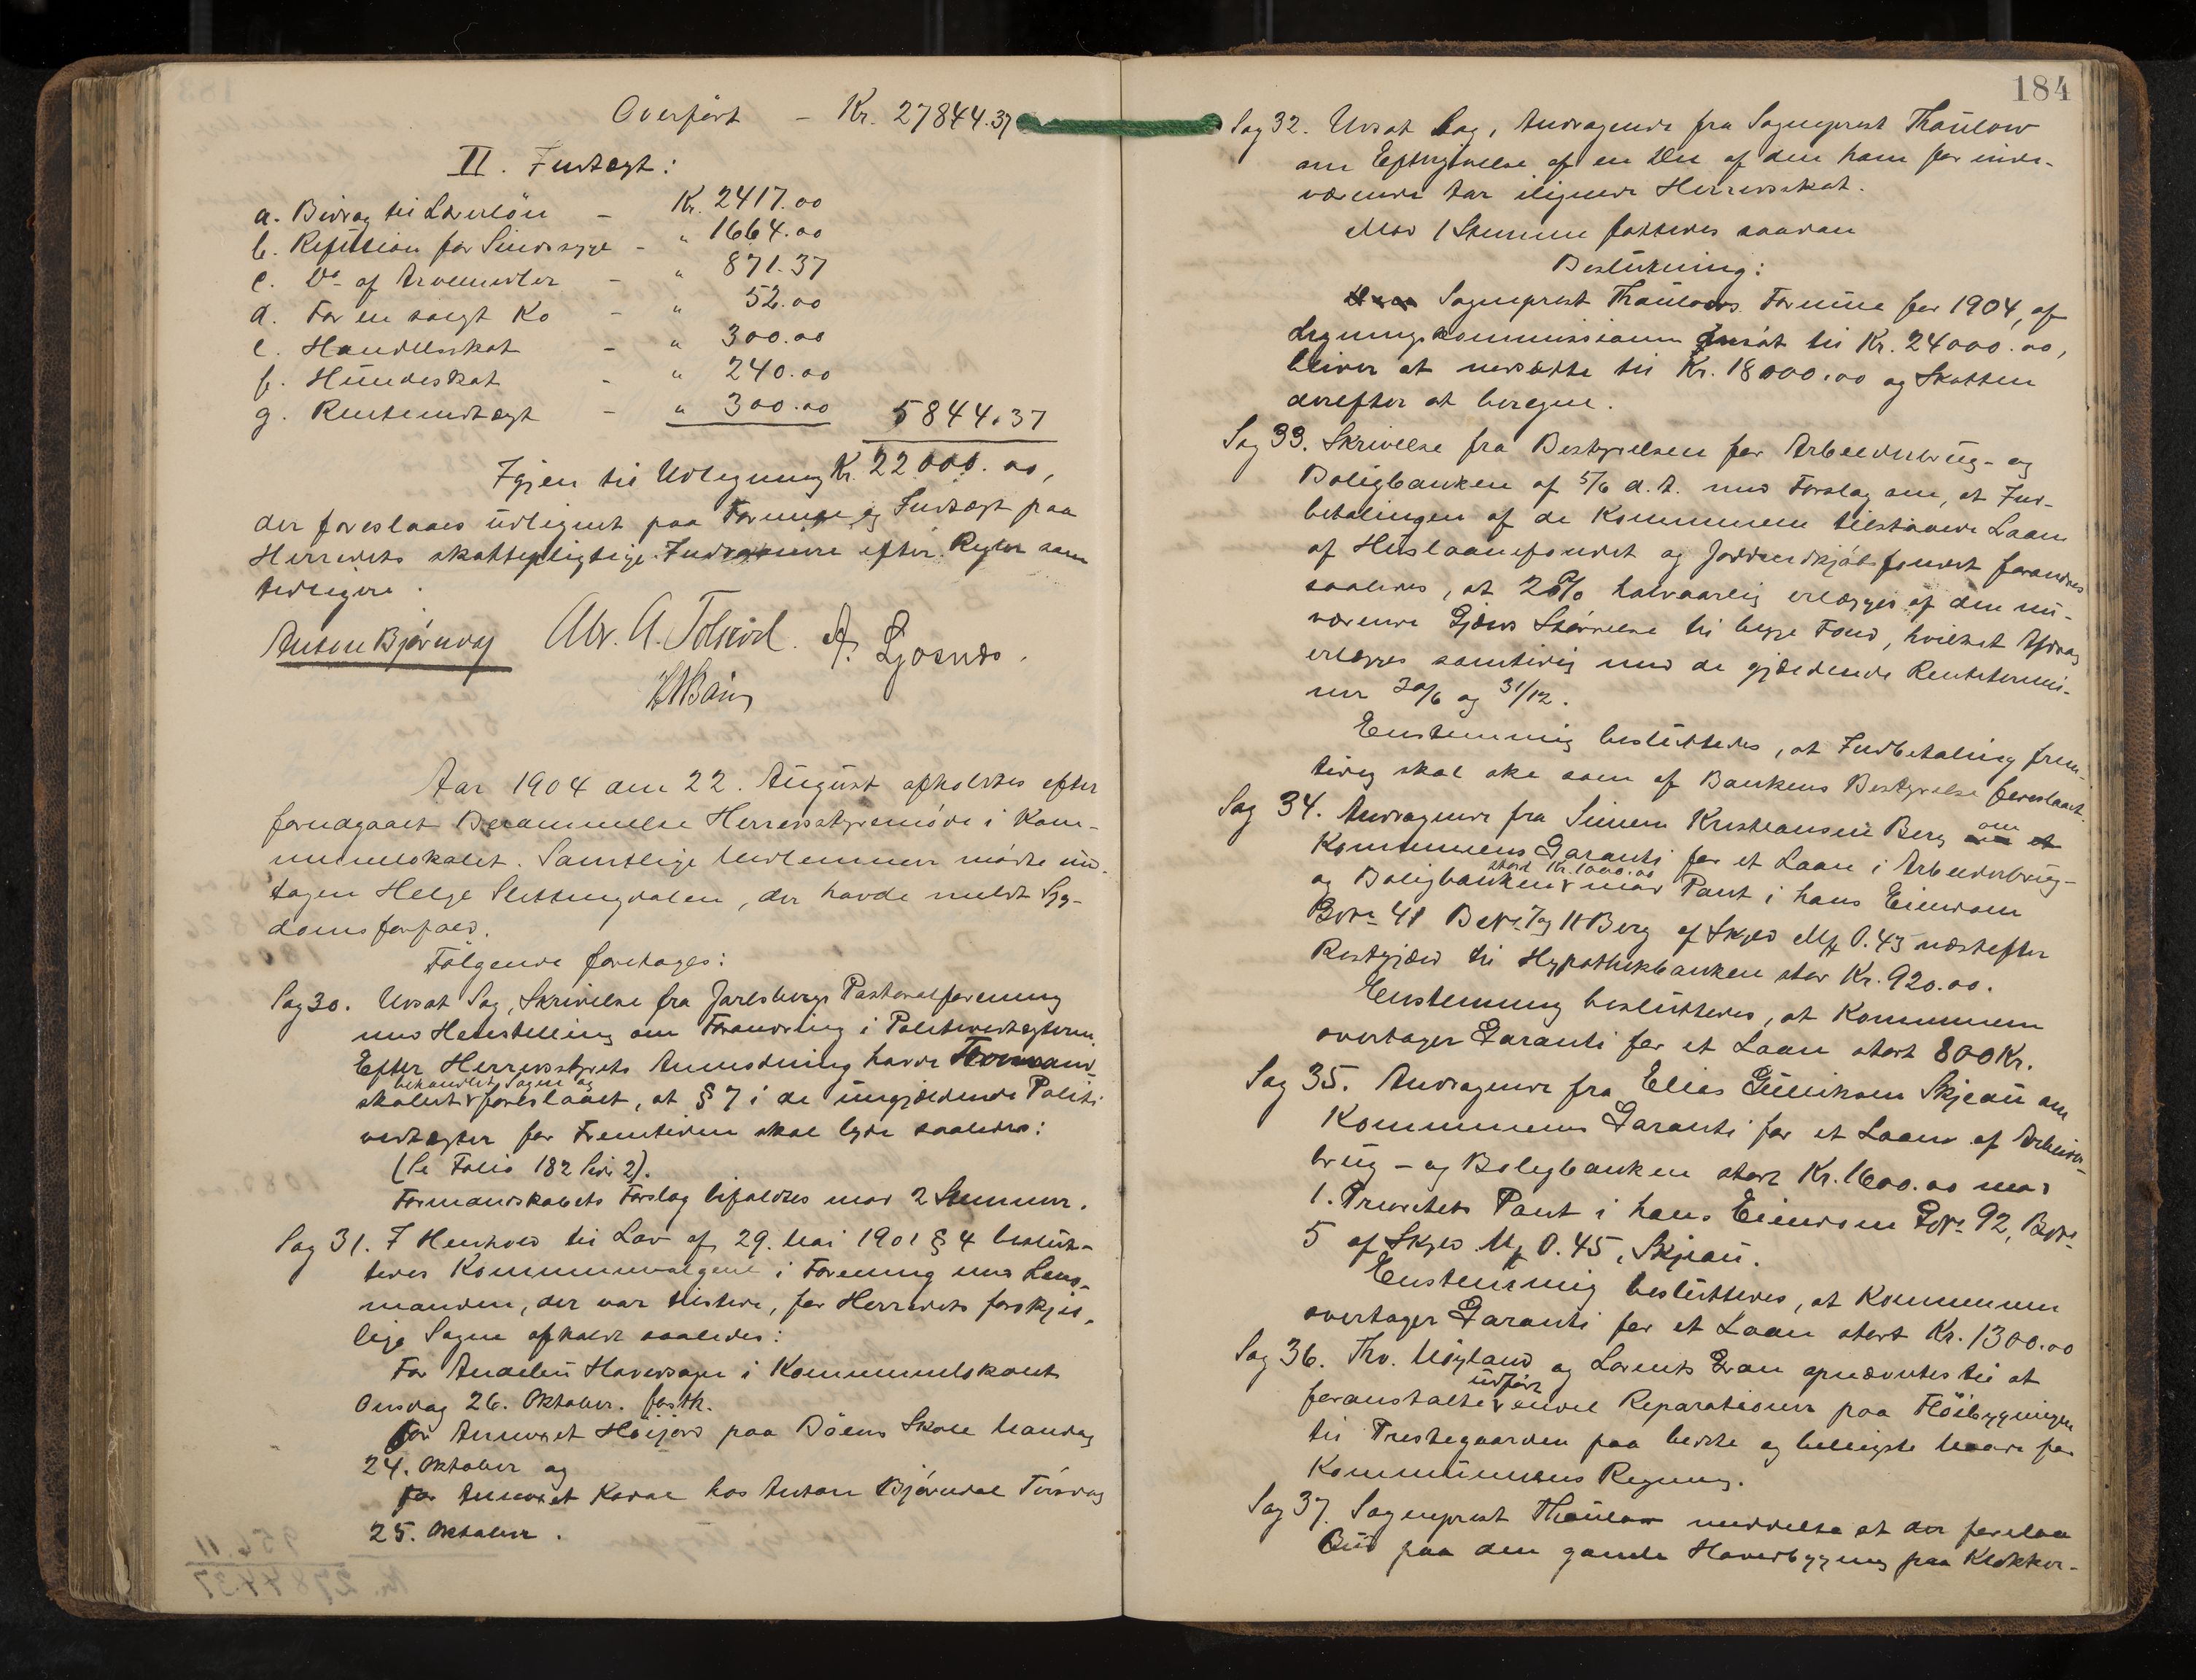 Overført – Kr. 27844.37
II. Indtægt:
a. Bidrag til Lærerløn – Kr. 2417.00
b. Refusion for Sindssyge – " 1664.00
c. Do af Arvemidler – " 871.37
d. For en solgt Ko – " 52.00
e. Handelsskat – " 300.00
f. Hundeskat – " 240.00
g. Renteindtægt – " 300.00 5844.37
Igjen til Udligning Kr. 22.000.00,
der foreslaaes udlignet paa Formue og Indtægt paa
Herredets skattepligtige Indvaanere efter Regler som
tidligere.
Anton Bjørndal Abr. A. Tolsrød. A. Gjosnæs.
Aar 1904 den 22. August afholdtes efter
forudgaaet Berammelse Herredsstyremøde i Kom-
munelokalet. Samtlige Medlemmer mødte und-
tagen Helge Slettingdalen, der havde meldt Syg-
domsforfald.
Følgende foretoges:
Sag 30. Udsat Sag, Skrivelse fra Jarlsbergs Pastoralforening
med Henstilling om Forandring i Politivedtægterne.
Efter Herredsstyrets Anmodning havde Formand-
behandlet Sagen og
skabet foreslaaet, at § 7 i de nugjældende Politi
vedtægter for Fremtiden skal lyde saaledes:
(Se Folio 182 Side 2).
Formandskabets Forslag bifaldtes mod 2 Stemmer.
Sag 31. I Henhold til Lov af 29. Mai 1901 § 4 beslut-
tedes Kommunevalgene i Forening med Lens-
manden, der var tilstede, for Herredets forskjel-
lige Sogne afholdt saaledes:
For Andebu Hovedsogn i Kommunelokalet
Onsdag 26. Oktober. førstk.
For Annexet Høijord paa Döens Skole Mandag
24. Oktober og
for Annexet Kodal hos Anton Bjørndal Tirsdag
25. Oktober.
184
Sag 32. Udsat Sag, Andragende fra Sogneprest Thaulow
om Eftergivelse af en Del af den ham for inde-
værende Aar ilignede Herredsskat.
Mod 1 Stemme fattedes saadan
Beslutning:
Sogneprest Thaulows Formue for 1904, af
Ligningskommissionen ansat til Kr. 24000.00,
bliver at nedsætte til Kr. 18000.00 og Skatten
derefter at beregne.
Sag 33. Skrivelse fra Bestyrelsen for Arbeiderbrug- og
Boligbanken af 5/6 d. A. med Forslag om, at Ind-
betalingen af de Kommunen tilstaaede Laan
af Huslaanefondet og Jordindkjøbsfondet forandres
saaledes, at 2% halvaarlig erlægges af den nu-
værende Gjælds Størrelse til begge Fond, hvilket Afdrag
erlægges samtidig med de gjældende Rentetermi-
ner 30/6 og 31/12.
Enstemmig besluttedes, at Indbetaling frem-
tidig skal ske som af Bankens Bestyrelse foreslaaet.
Sag 34. Andragende fra Simen Kristiansen Berg om
Kommunens Garanti for et Laan i Arbeiderbrug-
stort Kr. 1000.00
og Boligbanken mod Pant i hans Eiendom
Gno 41 Bno 7 og 11 Berg af Skyld Mk 0.43 næstefter
Restgjæld til Hypothekbanken stor Kr. 920.00.
Enstemmig besluttedes, at Kommunen
overtager Garanti for et Laan stort 800 Kr.
Sag 35. Andragende fra Elias Gulliksen Skjeau om
Kommunens Garanti for et Laan af Arbeider-
brug- og Boligbanken stort Kr. 1600.00 mod
1. Prioritets Pant i hans Eiendom Gno 92, Bno
5 af Skyld Mk 0.45, Skjeau.
Enstemmig besluttedes, at Kommunen
overtager Garanti for et Laan stort Kr. 1300.00
Sag 36. Thv. Møyland og Lorents Gran opnævntes til at
udført
foranstalte endel Reparationer paa Fløibygningen
til Prestegaarden paa bedste og billigste Maade for
Kommunens Regning.
Sag 37. Sogneprest Thaulow meddelte at der forelaa
Bud paa den gamle Hovedbygning paa Klokker-